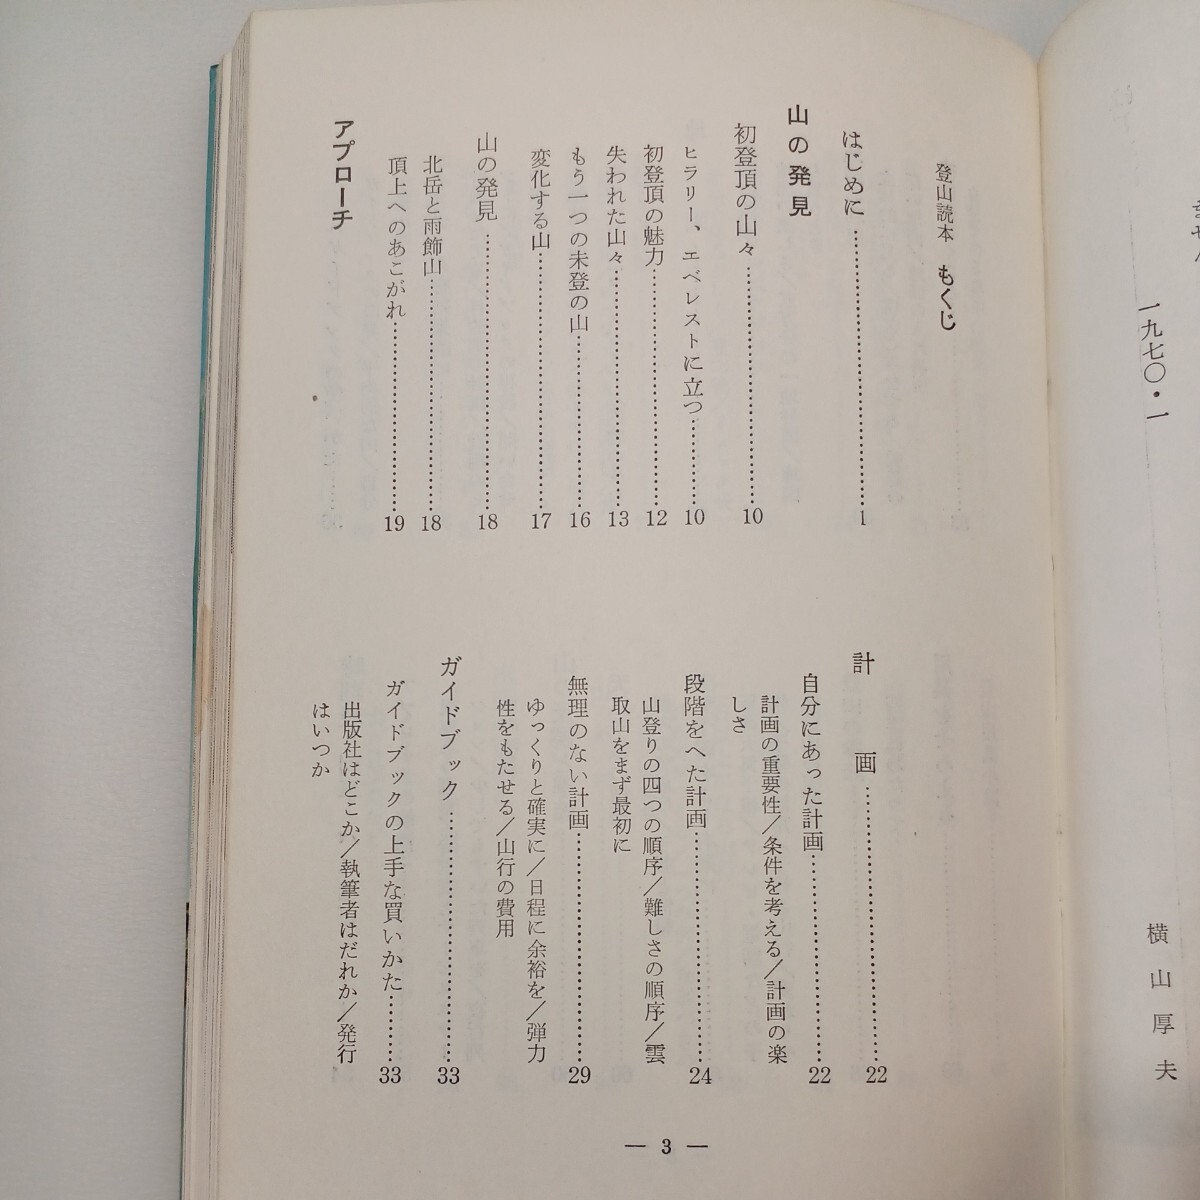 ません
一九七〇・一
横山厚夫
登山読本 もくじ
はじめに……………………1
山の発見
初登頂の山々……………………10
ヒラリー、エベレストに立つ…………10
初登頂の魅力……………………12
失われた山々……………………13
もう一つの未登の山……………………16
変化する山……………………17
山の発見……………………18
北岳と雨飾山……………………18
頂上へのあこがれ……………………19
アプローチ
計画……………………22
自分にあった計画……………………22
計画の重要性/条件を考える/計画の楽
しさ
段階をへた計画……………………24
山登りの四つの順序/難しさの順序/雲
取山をまず最初に
無理のない計画……………………29
ゆっくりと確実に/日程に余裕を/弾力
性をもたせる/山行の費用
ガイドブック……………………33
ガイドブックの上手な買いかた…………33
出版社はどこか/執筆者はだれか/発行
はいつか
— 3 —